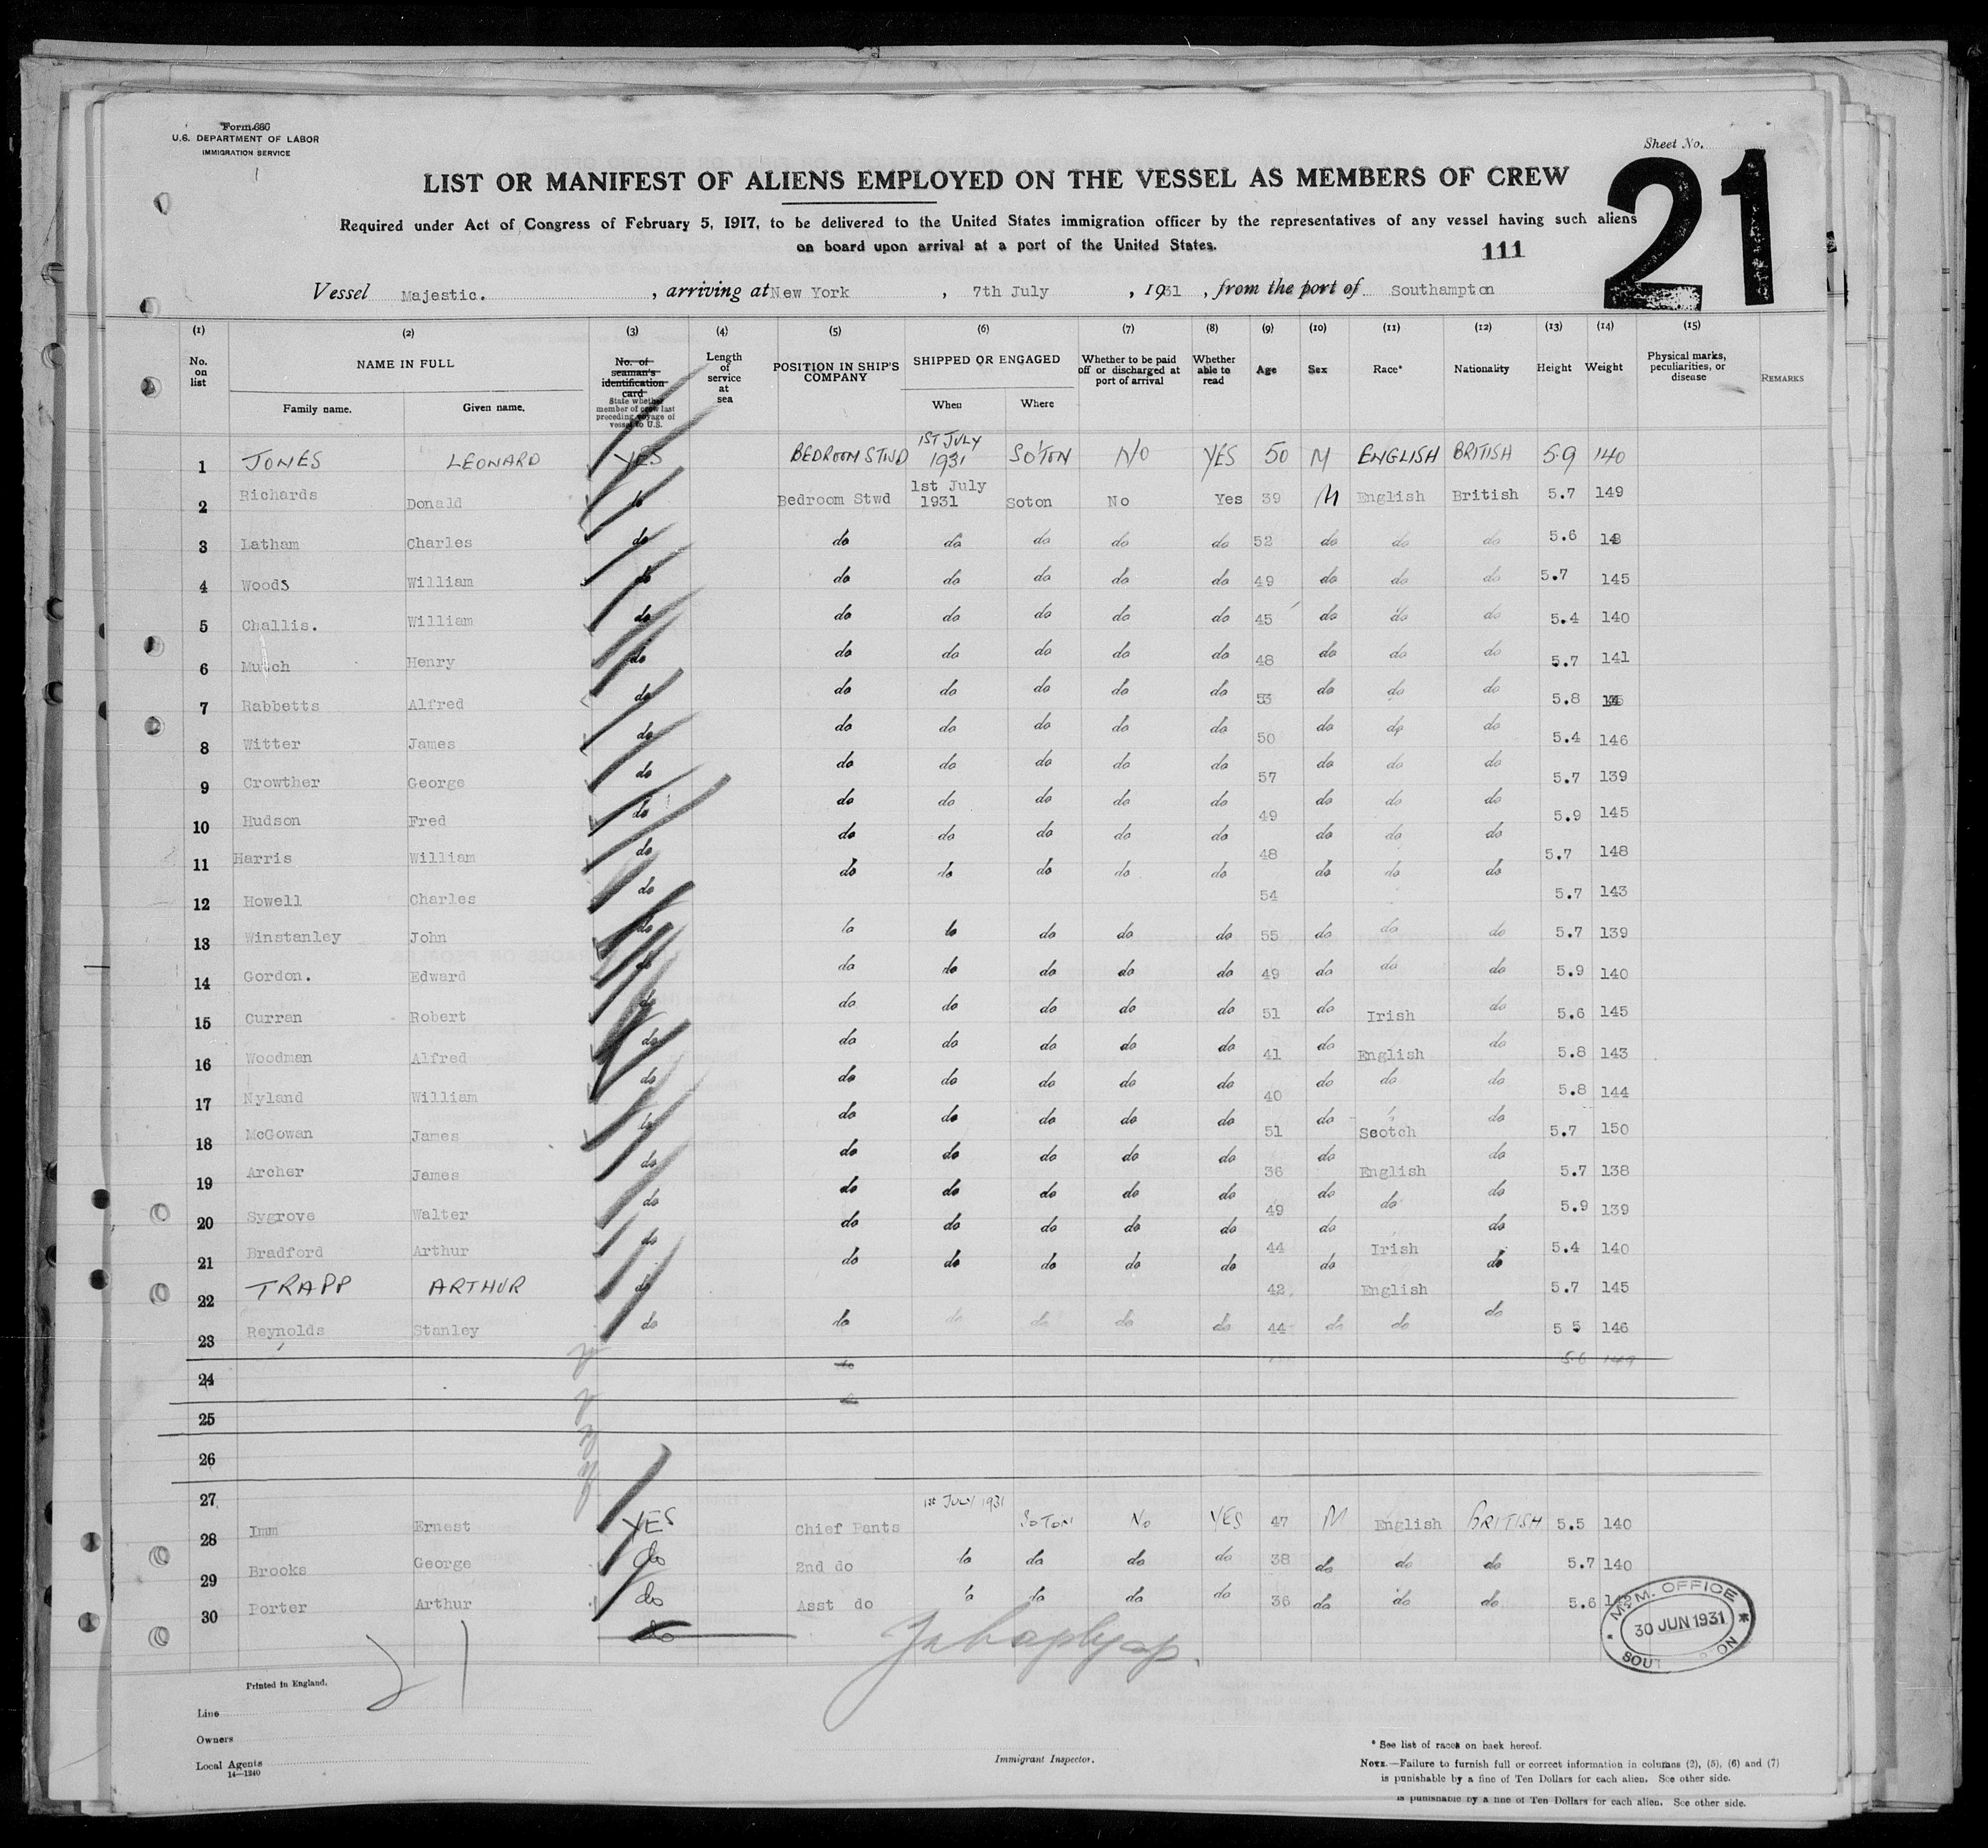 Form 680
U.S. DEPARTMENT OF LABOR
IMMIGRATION SERVICE
Sheet No.
21
LIST OR MANIFEST OF ALIENS EMPLOYED ON THE VESSEL AS MEMBERS OF CREW
Required under Act of Congress of February 5, 1917, to be delivered to the United States immigration officer by the representatives of any vessel having such aliens
on board upon arrival at a port of the United States.
111
Vessel Majestic. , arriving at New York , 7th July , 1931 , from the port of Southampton
(1) (2) (3) (4) (5) (6) (7) (8) (9) (10) (11) (12) (13) (14) (15)
No. on list NAME IN FULL Family name. Given name. No. of seaman's identification card State whether member of crew last preceding voyage of vessel to U.S. Length of service at sea POSITION IN SHIP'S COMPANY SHIPPED OR ENGAGED When Where Whether to be paid off or discharged at port of arrival Whether able to read Age Sex Race* Nationality Height Weight Physical marks, peculiarities, or disease REMARKS
1 JONES LEONARD YES BEDROOM STWD 1ST JULY 1931 SO'TON NO YES 50 M ENGLISH BRITISH 5.9 140
2 Richards Donald do Bedroom Stwd 1st July 1931 Soton No Yes 39 M English British 5.7 149
3 Latham Charles do do do do do do 52 do do do 5.6
4 Woods William do do do do do do 49 do do do 5.7 145
5 Challis. William do do do do do do 45 do do do 5.4 140
6 Mutch Henry do do do do do do 48 do do do 5.7 141
7 Rabbetts Alfred do do do do do do 53 do do do 5.8
8 Witter James do do do do do do 50 do do do 5.4 146
9 Crowther George do do do do do do 57 do do do 5.7 139
10 Hudson Fred do do do do do do 49 do do do 5.9 145
11 Harris William do do do do do do 48 do do do 5.7 148
12 Howell Charles do do do do do do 54 do do do 5.7 143
13 Winstanley John do do do do do do 55 do do do 5.7 139
14 Gordon. Edward do do do do do do 49 do do do 5.9 140
15 Curran Robert do do do do do do 51 do Irish do 5.6 145
16 Woodman Alfred do do do do do do 41 do English do 5.8 143
17 Nyland William do do do do do do 40 do do do 5.8 144
18 McGowan James do do do do do do 51 do Scotch do 5.7 150
19 Archer James do do do do do do 36 do English do 5.7 138
20 Sygrove Walter do do do do do do 49 do do do 5.9 139
21 Bradford Arthur do do do do do do 44 do Irish do 5.4 140
22 TRAPP ARTHUR do do do do do do 42 do English do 5.7 145
23 Reynolds Stanley do do do do do do 44 do do do 5 5 146
24 do 5.6 149
25 do
26
27
28 Imm Ernest YES Chief Pants 1st JULY 1931 SOTON No YES 47 M English BRITISH 5.5 140
29 Brooks George do 2nd do do do do do 38 do do do 5.7 140
30 Porter Arthur do Asst do do do do do 36 do do do 5.6
do
M.M. OFFICE
30 JUN 1931
21
Printed in England.
Line
Owners
Local Agents
14—1240
Immigrant Inspector.
* See list of races on back hereof.
NOTE.—Failure to furnish full or correct information in columns (2), (5), (6) and (7)
is punishable by a fine of Ten Dollars for each alien. See other side.
is punishable by a fine of Ten Dollars for each alien. See other side.